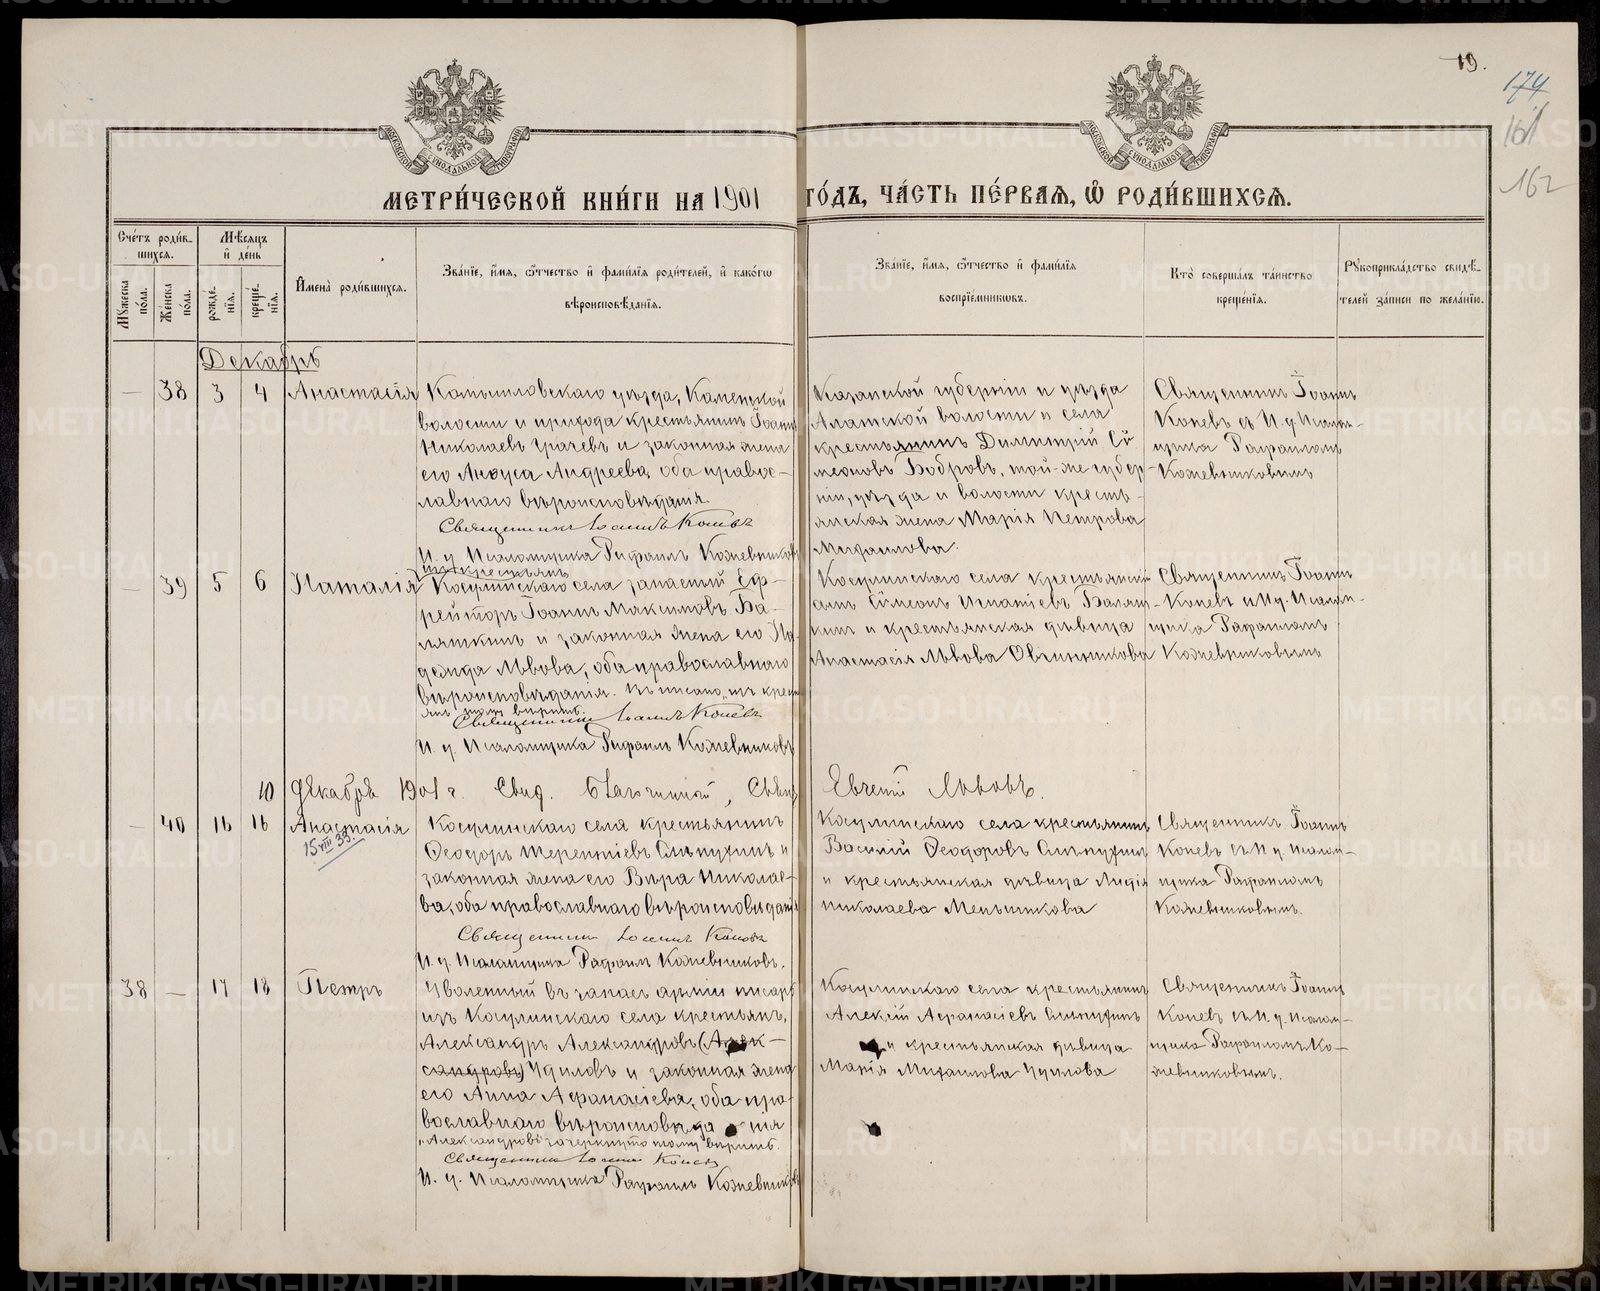 19.
174
161
162
МЕТРИ́ЧЕСКОЙ КНИ́ГИ НА 1901 ГО́ДЪ, ЧА́СТЬ ПЕ́РВАѦ, Ѡ҆ РОДИ́ВШИХСѦ.
Сче́тъ роди́вшихся.
Мѣ́сяцъ и҆ де́нь
Мꙋжеска по́ла.
Женска по́ла.
рожде́нїя.
креще́нїя.
И҆мена̀ роди́вшихся.
Зва́нїе, и҆́мя, ѻ҆́тчество и҆ фами́лїя роди́телей, и҆ како́гѡ вѣроисповѣ́данїя.
Зва́нїе, и҆́мя, ѻ҆́тчество и҆ фами́лїя воспрїе́мникѡвъ.
Кто̀ соверша́лъ та́инство креще́нїя.
Рꙋкоприкла́дство свидѣ́телей за́писи по жела́нїю.
Декабрь
— 38 3 4 Анастасія
Камышловскаго уѣзда, Каменской
волости и прихода крестьянинъ Іоаннъ
Николаевъ Грачевъ и законная жена
его Андреева, оба правос-
лавнаго вѣроисповѣданія.
Священникъ Іоаннъ Коневъ
И. д. Псаломщика Рафаилъ Кожевниковъ
Казанской губерніи и уѣзда
Алатской волости и села
крестьянинъ Димитрій Сѵ-
меоновъ Бобровъ, той-же губер-
ніи, уѣзда и волости кресть-
янская жена Марія Петрова
Михаилова.
Священникъ Іоаннъ
Коневъ съ И. д. Псалом-
щика Рафаиломъ
Кожевниковымъ
— 39 5 6 Наталія
изъ крестьянъ
Косулинскаго села запасный Еф-
рейторъ Іоаннъ Максимовъ Ба-
ляшкинъ и законная жена его На-
дежда Львова, оба православнаго
вѣроисповѣданія. Надписано „изъ кресть-
янъ" тому вѣрить.
Священникъ Іоаннъ Коневъ
И. д. Псаломщика Рафаилъ Кожевниковъ
Косулинскаго села крестьянскій
сынъ Сѵмеонъ Игнатіевъ Баляш-
кинъ и крестьянская дѣвица
Анастасія Львова Овчинникова
Священникъ Іоаннъ
Коневъ и И. д. Псалом-
щика Рафаиломъ
Кожевниковымъ
10 Декабря 1901 г. Свид. благочинный, Свящ. Евгеній Львовъ.
— 40 16 16 Анастасія
15 VIII 39.
Косулинскаго села крестьянинъ
Ѳеодоръ Терентіевъ Слѣпухинъ и
законная жена его Вѣра Николае-
ва, оба православнаго вѣроисповѣданія
Священникъ Іоаннъ Коневъ
И. д. Псаломщика Рафаилъ Кожевниковъ.
Косулинскаго села крестьянинъ
Василій Ѳеодоровъ Слѣпухинъ
и крестьянская дѣвица Лидія
Николаева Меньшикова
Священникъ Іоаннъ
Коневъ съ И. д. Псалом-
щика Рафаиломъ
Кожевниковымъ.
38 — 17 18 Петръ
Уволенный въ запасъ арміи писарь
изъ Косулинскаго села крестьянъ,
Александръ Александровъ (Алек-
сандровъ) Чуиловъ и законная жена
его Анна Аѳанасіева, оба пра-
вославнаго вѣроисповѣданія
„Александровъ" зачеркнуто тому вѣрить.
Священникъ Іоаннъ Коневъ
И. д. Псаломщика Рафаилъ Кожевниковъ
Косулинскаго села крестьянинъ
Алексій Аѳанасіевъ Слѣпухинъ
и крестьянская дѣвица
Марія Михаилова Чуилова
Священникъ Іоаннъ
Коневъ съ И. д. Псалом-
щика Рафаиломъ Ко-
жевниковымъ.